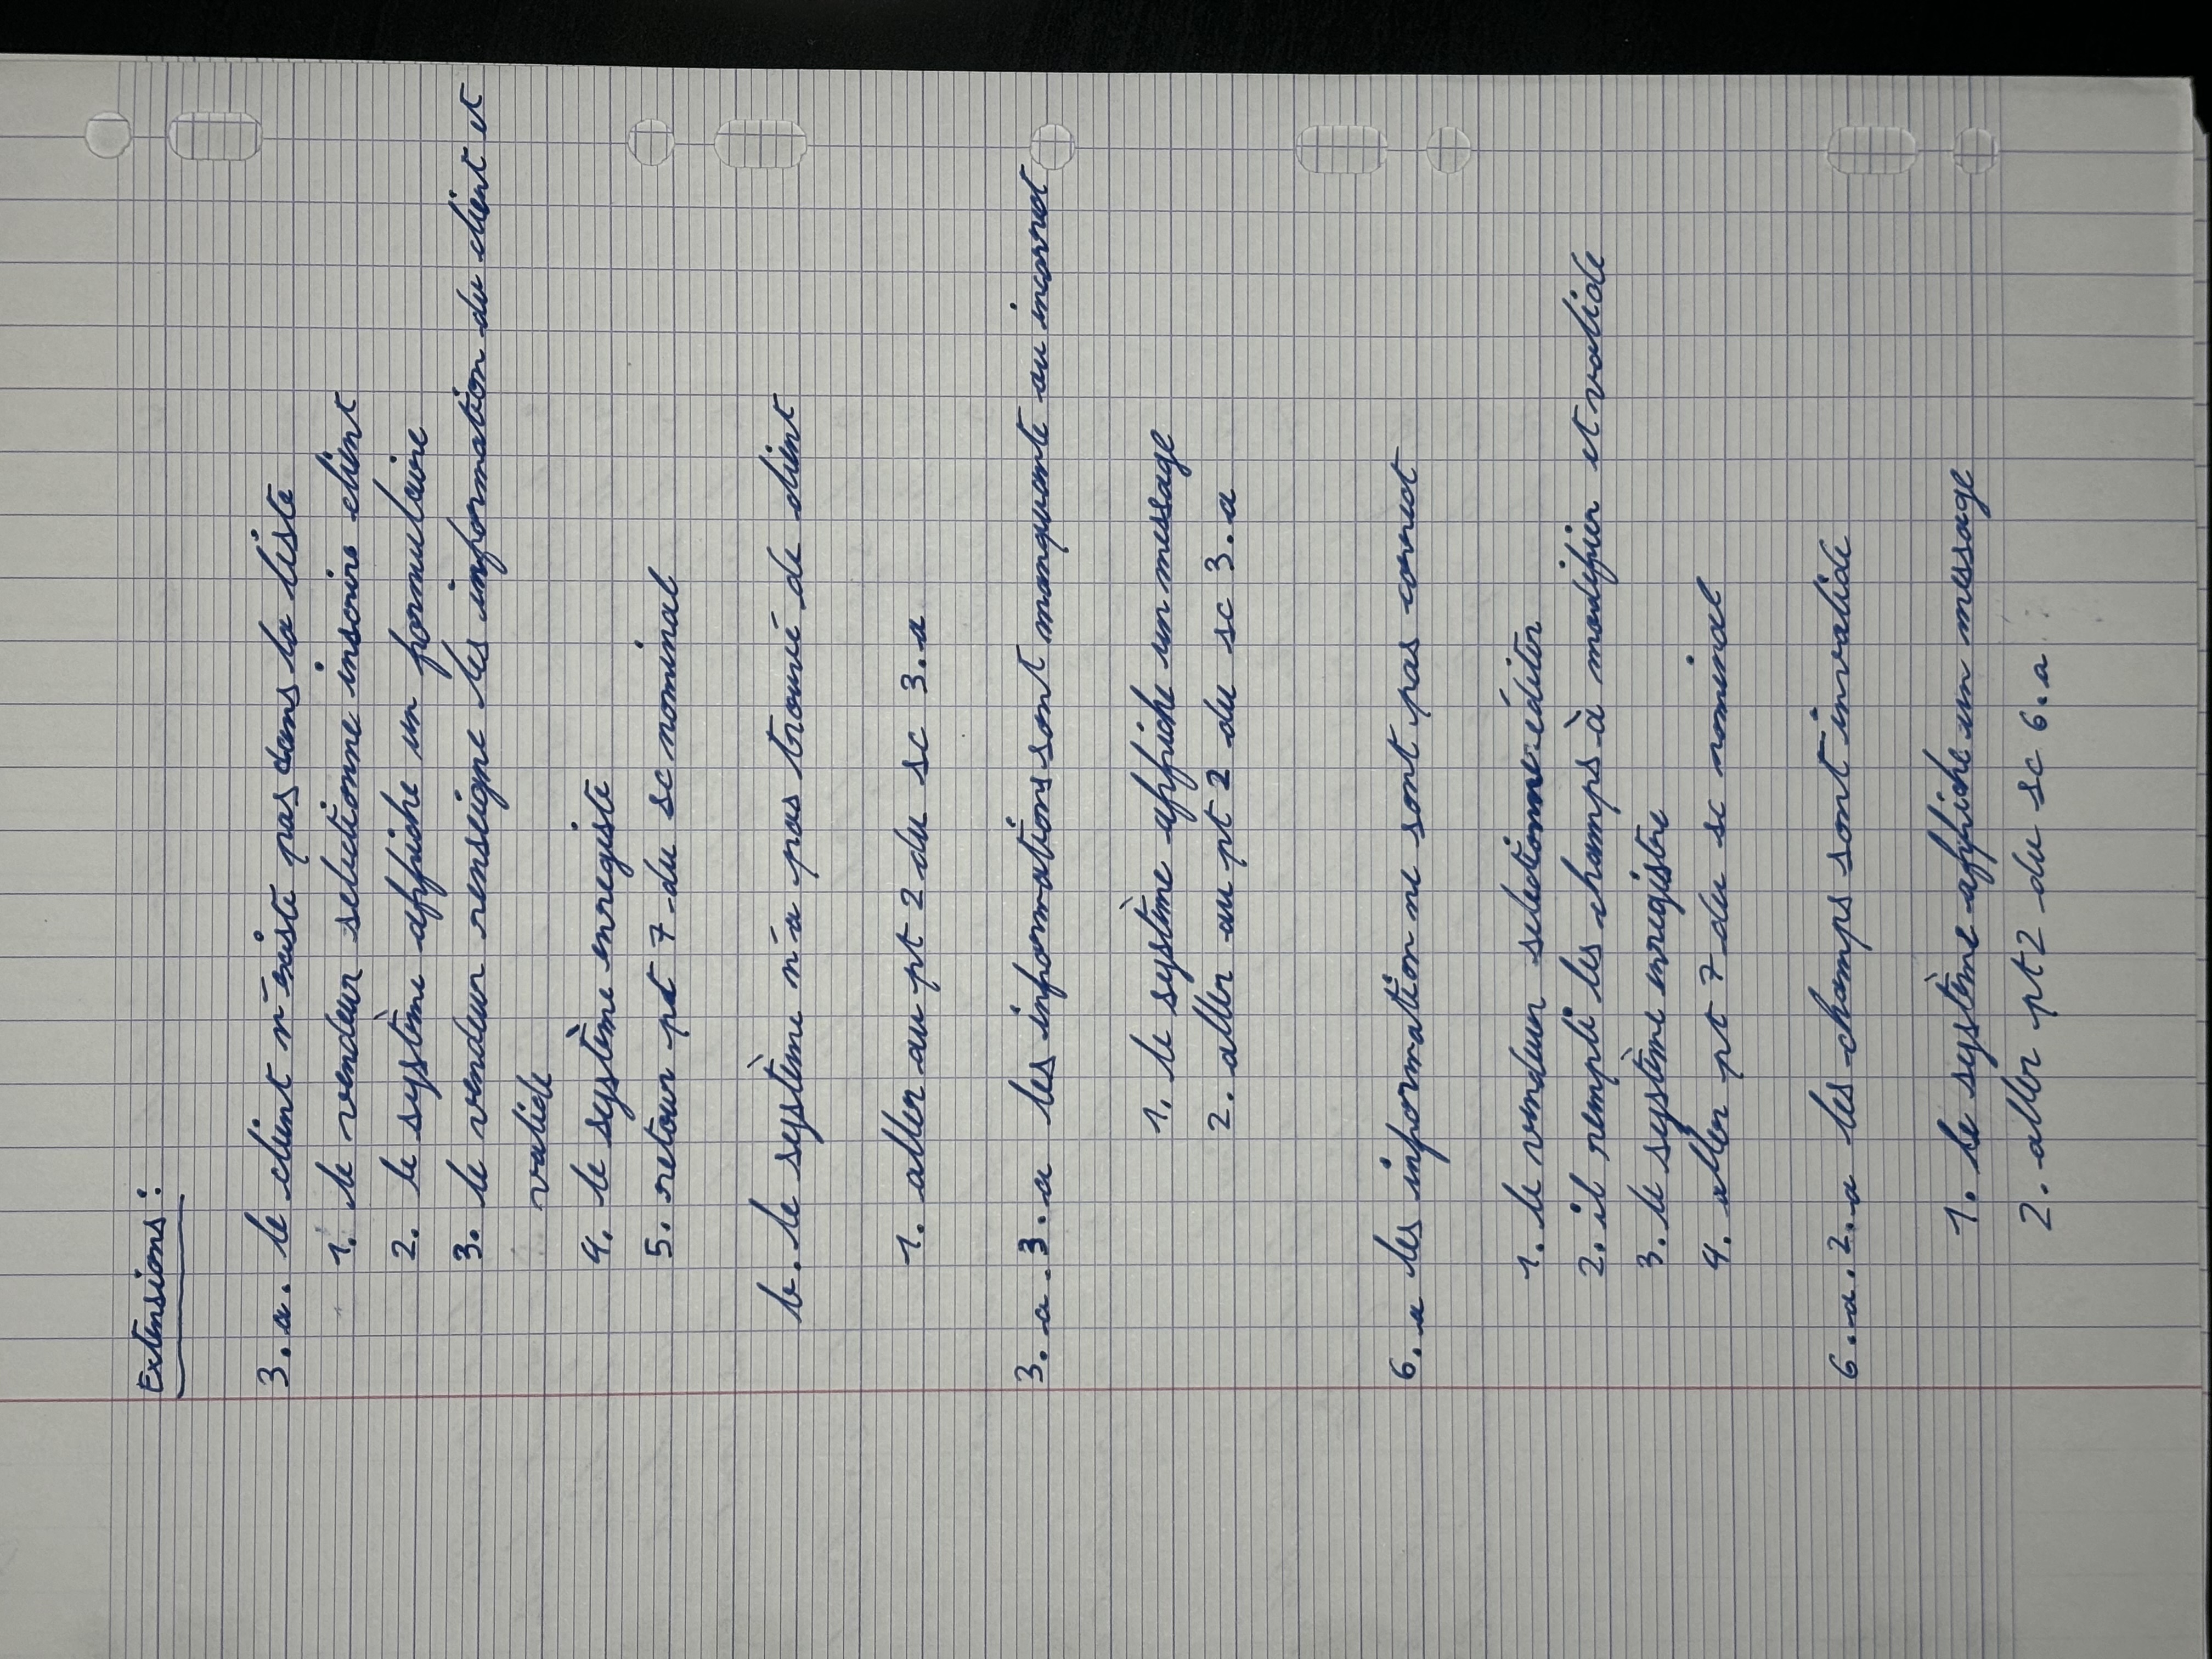 Extensions :
3. a. le client n'existe pas dans la liste
1. le vendeur selectionne inscrire client
2. le système affiche un formulaire
3. le vendeur renseigne les information du client et
valide
4. le système enregiste
5. retour pt 7 du sc nominal
b. le système n'a pas trouvé de client
1. aller au pt 2 du sc 3. a
3. a. 3. a les informations sont manquante ou incorrect
1. le système affiche un message
2. aller au pt 2 du sc 3. a
6. a les information ne sont pas correct
1. le vendeur selectionne éditer
2. il rempli les champs à modifier et valide
3. le système enregistre
4. aller pt 7 du sc nominal
6. a. 2. a les champs sont invalide
1. le système affiche un message
2. aller pt 2 du sc 6. a